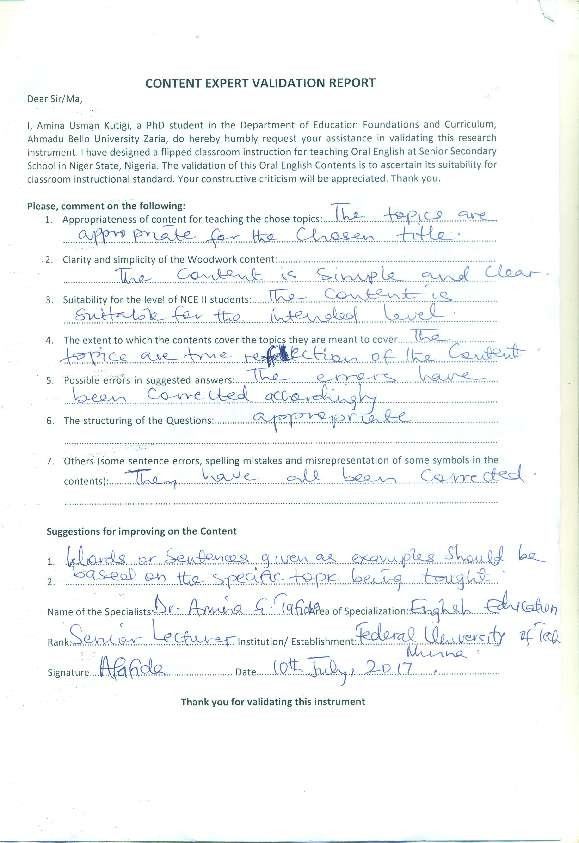 CONTENT EXPERT VALIDATION REPORT
Dear Sir/Ma,
I, Amina Usman Kutigi, a PhD student in the Department of Education Foundations and Curriculum,
Ahmadu Bello University Zaria, do hereby humbly request your assistance in validating this research
instrument. I have designed a flipped classroom instruction for teaching Oral English at Senior Secondary
School in Niger State, Nigeria. The validation of this Oral English Contents is to ascertain its suitability for
classroom instructional standard. Your constructive criticism will be appreciated. Thank you.
Please, comment on the following:
1. Appropriateness of content for teaching the chose topics: The topics are
appropriate for the Chosen title.
2. Clarity and simplicity of the Woodwork content:
The Content is Simple and Clear.
3. Suitability for the level of NCE II students: The Content is
Suitable for the intended level.
4. The extent to which the contents cover the topics they are meant to cover The
topics are true reflection of the Content
5. Possible errors in suggested answers: The errors have
been Corrected accordingly
6. The structuring of the Questions: appropriate
7. Others (some sentence errors, spelling mistakes and misrepresentation of some symbols in the
contents): They have all been Corrected.
Suggestions for improving on the Content
1. Words or Sentences given as examples Should be
2. based on the specific topic being taught
Name of the Specialists: Dr. Amina G. Tafida Area of Specialization: English Education
Rank: Senior Lecturer Institution/ Establishment: Federal University of Tech
Minna
Signature Atafida Date 10th July, 2017.
Thank you for validating this instrument